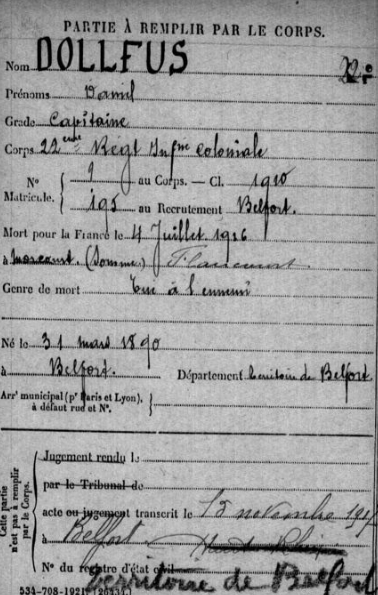 PARTIE À REMPLIR PAR LE CORPS.
Nom DOLLFUS
Prénoms Daniel
Grade Capitaine
Corps 22eme Regt Infrie coloniale
N° 9 au Corps. — Cl. 1910
Matricule. 195 au Recrutement Belfort.
Mort pour la France le 4 Juillet 1916
à (Somme) Flaucourt
Genre de mort Tué à l'ennemi
Né le 31 mars 1890
à Belfort. Département territoire de Belfort
Arrt municipal (pr Paris et Lyon),
à défaut rue et N°.
Cette partie n'est pas à remplir par le Corps.
Jugement rendu le
par le Tribunal de
acte ou jugement transcrit le 15 novembre
à Belfort Haut-Rhin
N° du registre d'état civil
territoire de Belfort
534-708-1921